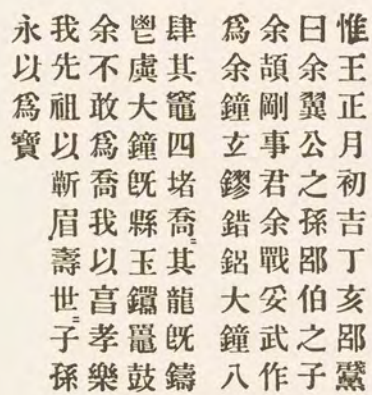 惟王正月初吉丁亥郘
曰余翼公之孫郘伯之子
余頡剛事君余戰妥武作
爲余鐘玄鏐錯鋁大鐘八
肆其竈四堵喬=其龍旣鑄
鬯虡大鐘旣縣玉鼉鼓
余不敢爲喬我以亯孝樂
我先祖以蘄眉壽世=子孫
永以爲寶